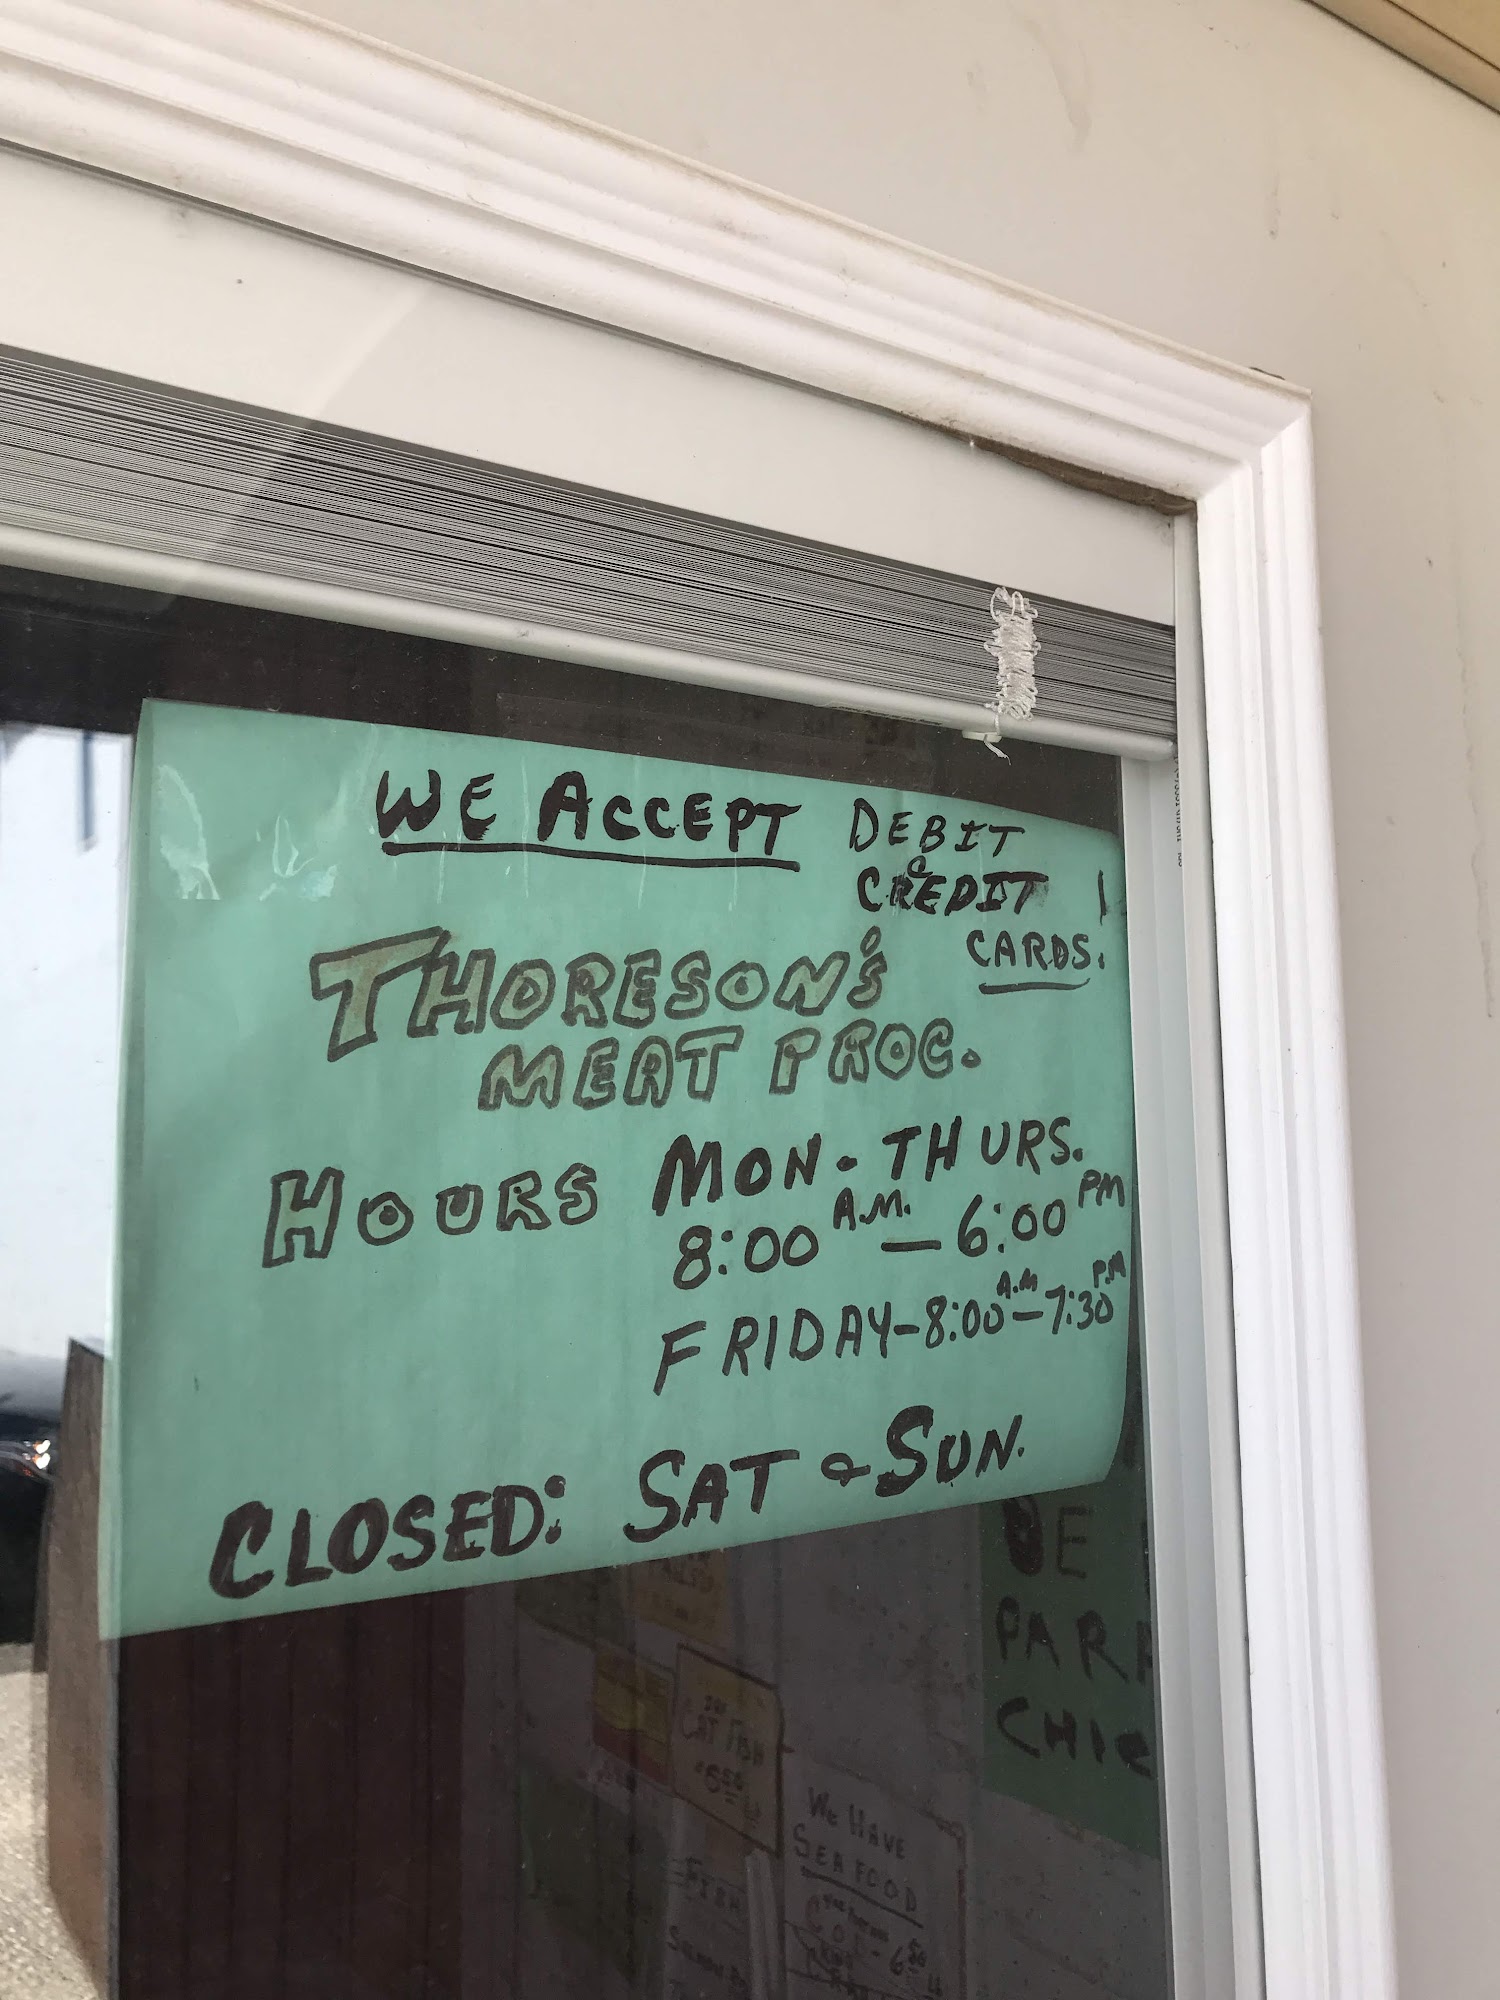 WE ACCEPT DEBIT
& CREDIT
CARDS.
THORESON'S
MEAT PROC.
HOURS MON-THURS.
8:00 A.M. — 6:00 PM
FRIDAY-8:00 A.M-7:30 P.M
CLOSED: SAT & SUN.
PAR
CHIC
CAT FISH
WE HAVE
SEA FOOD
FISH